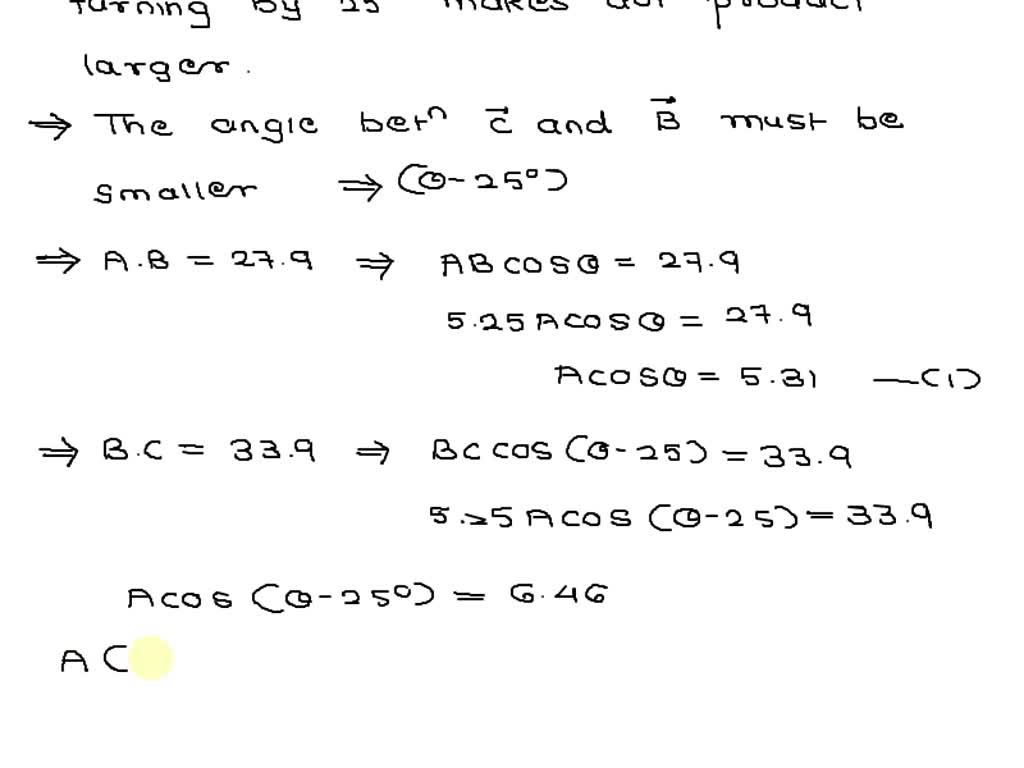 turning by 25 makes dot product
larger.
⇒ The angle betⁿ C⃗ and B⃗ must be
smaller ⇒ (θ-25°)
⇒ A.B = 27.9 ⇒ ABcosθ = 27.9
5.25Acosθ = 27.9
Acosθ = 5.31 —(1)
⇒ B.C = 33.9 ⇒ BCcos(θ-25) = 33.9
5.25Acos(θ-25) = 33.9
Acos(θ-25°) = 6.46
A(